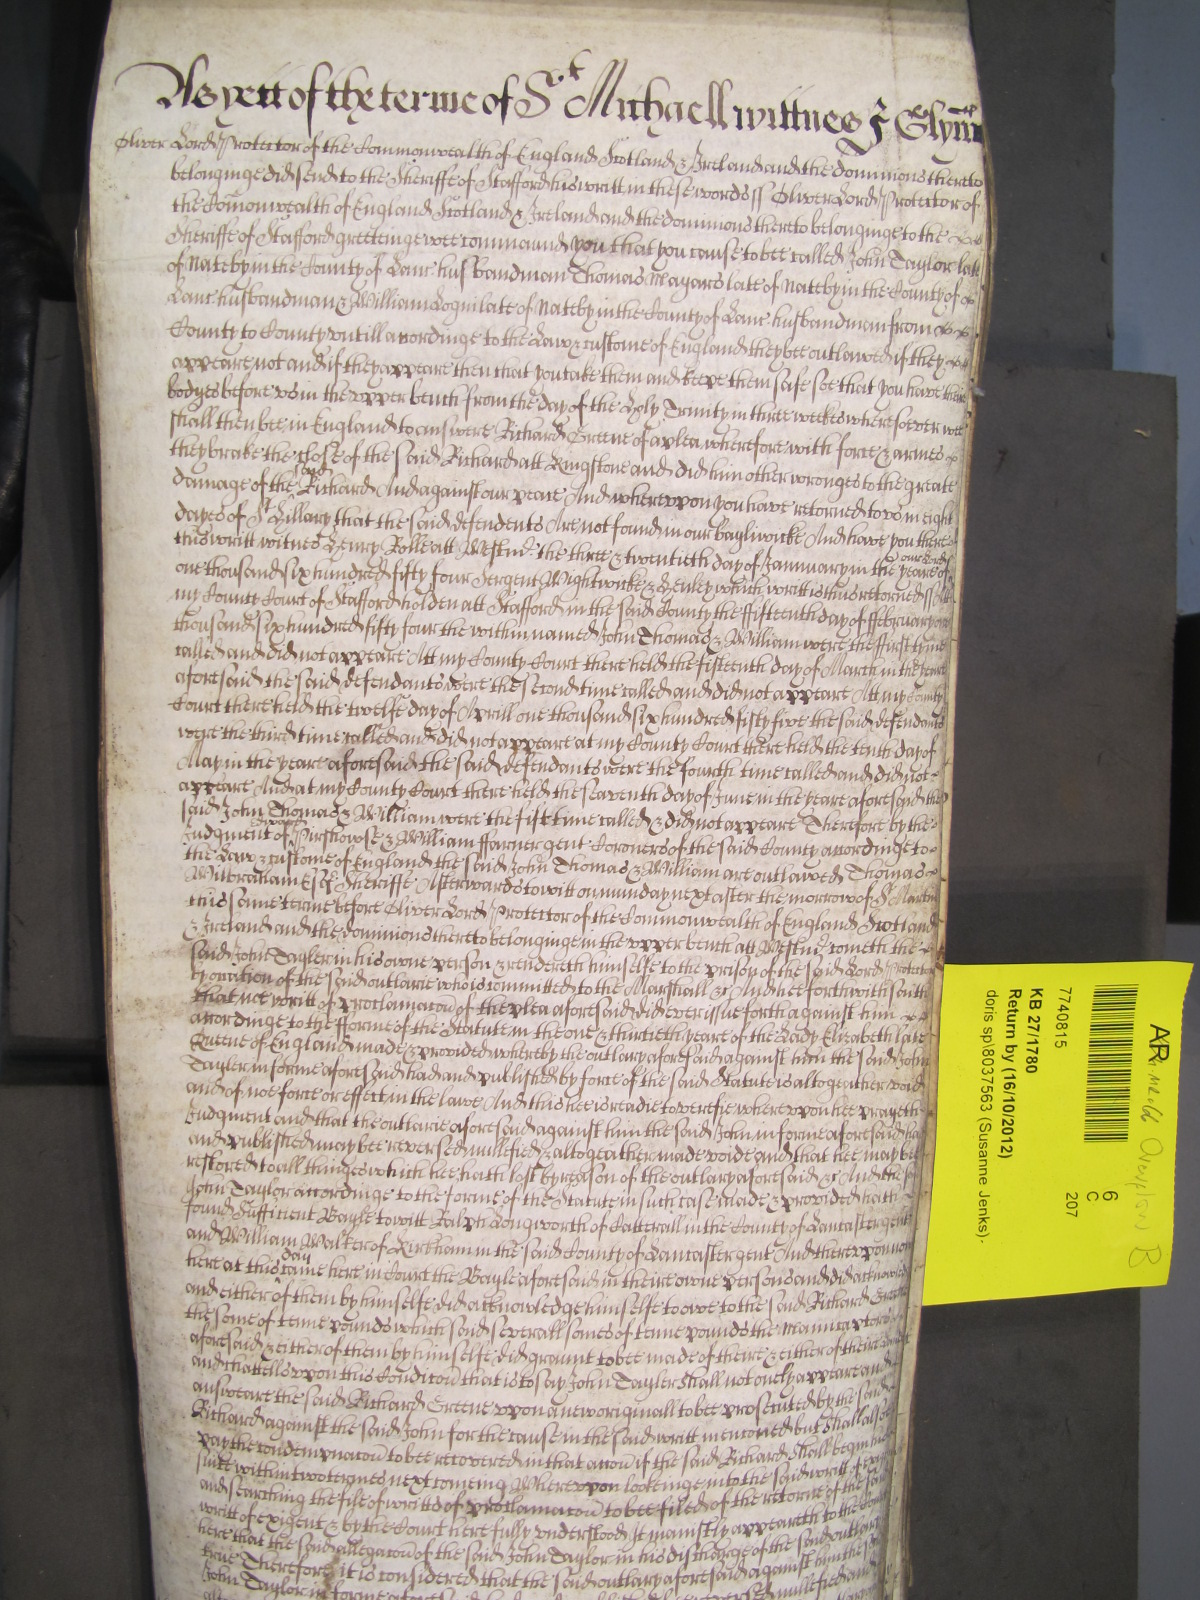 As yett of the terme of St Michaell wittnes J Glynn
Oliver Lord Protector of the Commonwealth of England Scotland & Ireland and the dominions thereto
belonginge did send to the Sheriffe of Stafford his writt in these words ss Oliver Lord Protector of
the Comonwealth of England Scotland & Ireland and the dominions thereto belonginge to the
Sheriffe of Stafford greetinge wee commaund you that you cause to bee called John Taylor late
of Nateby in the County of Lanc husbandman Thomas late of Nateby in the County of
Lanc husbandman & William late of Nateby in the County of Lanc husbandman from
County to County untill accordinge to the Law & custome of England they bee outlawed if they
appeare not and if they appeare then that you take them and keepe them safe soe that you have their
bodyes before us in the upper bench from the day of the Holy Trinity in three weekes wheresoever wee
shall then bee in England to answere Richard Greene of a plea wherefore with force & armes
they brake the close of the said Richard att Kingstone and did him other wronges to the greate
damage of the said Richard And against our peace And whereupon you have returned to us in eight
dayes of St Hillary that the said defendents Are not found in our bayliwicke And have you there
this writt witnes Henry Rolle att Westmr the three & twentieth day of January in the yeare of our Lord
one thousand six hundred fifty four Sergent Wightwicke & Henley which writt is thus retorned ss Att
my County Court of Stafford holden att Stafford in the said County the fifteenth day of ffebruary one
thousand six hundred fifty four the within named John Thomas & William were the first time
called and did not appeare Att my County Court there held the fifteenth day of March in the yeare
aforesaid the said defendants were the second time called and did not appeare Att my County
Court there held the twelfe day of Aprill one thousand six hundred fifty five the said defendants
were the third time called and did not appeare at my County Court there held the tenth day of
May in the yeare aforesaid the said defendants were the fourth time called and did not
appeare And at my County Court there held the seaventh day of June in the yeare aforesaid the
said John Thomas & William were the fift time called & did not appeare Therefore by the
Judgment of & William ffarmer gent Coroners of the said County accordinge to
the Law & custome of England the said John Thomas & William are outlawed Thomas
Esqr Sheriffe Afterwards to witt on munday next after the morrow of St Martin
this same terme before Oliver Lord Protector of the Commonwealth of England Scotland
& Ireland and the dominions thereto belonginge in the upper bench att Westmr cometh the
said John Tayler in his owne person & rendereth himselfe to the prison of the said Lord Protector
by occasion of the said outlarie who is committed to the Marshall &c And hee forthwith saith
that noe writt of proclamacon of the plea aforesaid did ever issue forth against him
accordinge to the fforme of the Statute in the one & thirtieth yeare of the Lady Elizabeth late
Queene of England made & provided whereby the outlary aforesaid against him the said John
Tayler in forme aforesaid had and published by force of the said Statute is altogeather void
and of noe force or effect in the lawe And this hee is readie to verefie whereupon hee prayeth
Judgment and that the outlarie aforesaid against him the said John in forme aforesaid had
and published may bee reversed nullefied & altogeather made voide and that hee may bee
restored to all thinges which hee hath lost by reason of the outlary aforesaid &c And the said
John Taylor accordinge to the forme of the Statute in such case made & provided hath
found Sufficient Bayle to witt Ralph Longworth of Catterall in the County of Lancaster gent
and William Walker of Kirkham in the said County of Lancaster gent And thereupon now
here at this day came here in Court the Bayle aforesaid in theire owne persons and did acknowledge
and either of them by himselfe did acknowledge himselfe to owe to the said Richard Greene
the some of tenne pounds which said severall somes of tenne pounds the Manucaptors
aforesaid & either of them by himselfe did graunt to bee made of theire & either of theire
and chattells upon this Condicon that is to say John Tayler shall not onely appeare and
answeare the said Richard Greene upon a new originall to bee prosecuted by the said
Richard against the said John for the cause in the said writt mencioned but shall alsoe
pay the condempnacon to bee recovered in that accon if the said Richard shall begin his
suite within two termes next comeing Whereupon lookeinge into the said writt of exigent
and searching the file of writts of proclamacon to bee filed of the retorne of the said
writt of exigent & by the Court here fully understood It manifestly appeareth to the Court
here that the said allegacon of the said John Taylor in his discharge of the said outlary
true Therefore it is considered that the said outlary aforesaid against him the said
John Taylor in forme aforesaid
7740815
KB 27/1780
Return by (16/10/2012)
doris sp\8037563 (Susanne Jenks)
AR
6
C
207